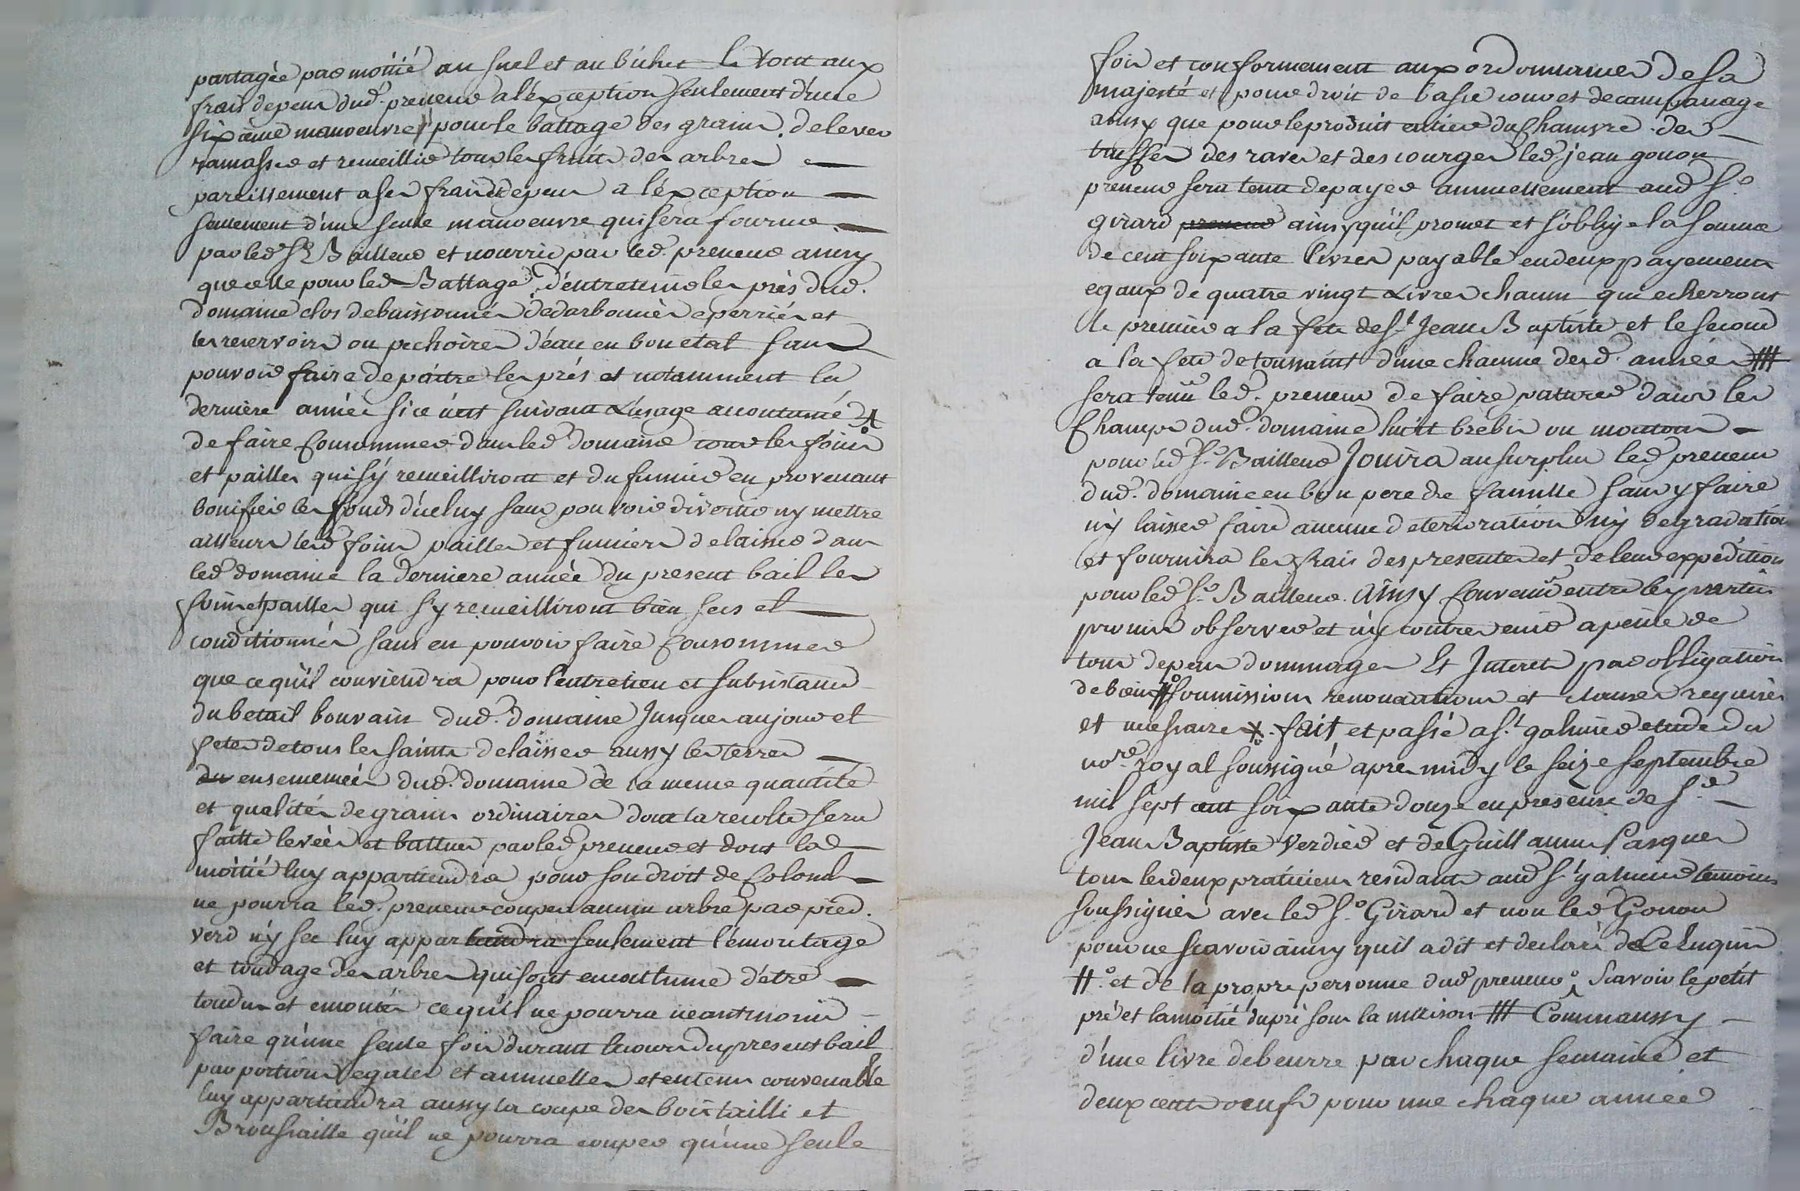 partagée par moitié au suel et au bichet le tout aux
frais depens dud. preneur a l'exception seulement d'une
sixième manoeuvre pour le battage des grains, de lever
ramasser et recueillir tous les fruits des arbres
pareillement a ses frais depens a l'exception
seulement d'une seule manoeuvre qui sera fournie
par led Sr Bailleur et nourrie par led. preneur ainsy
que celle pour led Battage, d'entretenir les près dud.
domaine clos de buissonnés dedarbonnés eperriés et
les reservoirs ou pechoires d'éau en bon état sans
pouvoir faire depaitre les prés et notamment la
derniere année si ce n'est suivant L'usage acoutumé
de faire Consommer dans led domaine tous les foins
et pailles qui s'y recueilliront et du fumier en provenant
bonifier les fonds d'iceluy sans pouvoir divertir ny mettre
ailleurs lesd foins pailles et fumiers delaisser dans
led domaine la derniere année du present bail les
foins et pailles qui sy recueilliront bien secs et
conditionnés sans en pouvoir faire Consommer
que ce qu'il conviendra pour l'entretien et subsistance
du betail bouvain dud. domaine Jusques au jour et
fete de tous les saints delaisser aussy les terres
du ensemencées dud. domaine de la meme quantité
et qualité de grains ordinaires dont la recolte sera
faitte levée et battue par led preneur et dont la
moitié luy appartiendra pour son droit de Colonne
ne pourra led. preneur couper aucun arbre par pied
verd ny sec luy appartiendra seulement l'émontage
et tondage des arbres qui sont en coutume d'etre
tondus et emontés ce qu'il ne pourra neantmoins
faire qu'une seule fois durant le cours du present bail
par portions égales et annuelles et en tems convenable
luy appartiendra aussy la coupe des bois tailli et
Broussaille qu'il ne pourra couper qu'une seule
fois et conformement aux ordonnances de sa
majesté et pour droit de basse cour et de campanage
ainsy que pour le produit entier du Chanvre des
truffes des raves et des courges led. jean gonon
preneur sera tenu de payer annuellement aud Sr
girard preneur ainsy qu'il promet et s'oblige la somme
de cent soixante livres payable en deux payements
egaux de quatre vingt Livres chacun qui echerront
le premier a la fete de St Jean Baptiste et le second
a la fete de toussaints d'une chacune desd. années
sera tenu led. preneur de faire paturer dans les
Champs dud. domaine huitt brebis ou moutons
pour led Sr Bailleur Jouira au surplus led preneur
dud. domaine en bon pere de famille sans y faire
ny laisser faire aucune deterioration ny degradation
et fournira les frais des presentes et de leur expédition
pour led Sr Bailleur. Ainsy Convenu entre les parties
promis observer et n'y contrevenir a peine de
tous depens dommages Et Interets par obligation
de biens # soumissions renonciations et clauses requises
et necessaires x. fait et passé a St galmier etude du
nore royal soussigné apres midy le seize septembre
mil sept cent soixante douze en presence de Sr
Jean Baptiste Verdier et de Guillaume Pasquer
tous les deux praticiens residants aud St galmier temoins
soussignés avec led Sr Girard et non led Gonon
pour ne scavoir ainsy qu'il a dit et declaré de Ce Enquis
# et de la propre personne dud preneur scavoir le petit
pré et la moitié du pré sous la maison Comm aussy
d'une livre de beurre par chaque semaine et
deux cent oeufs pour une chaque année